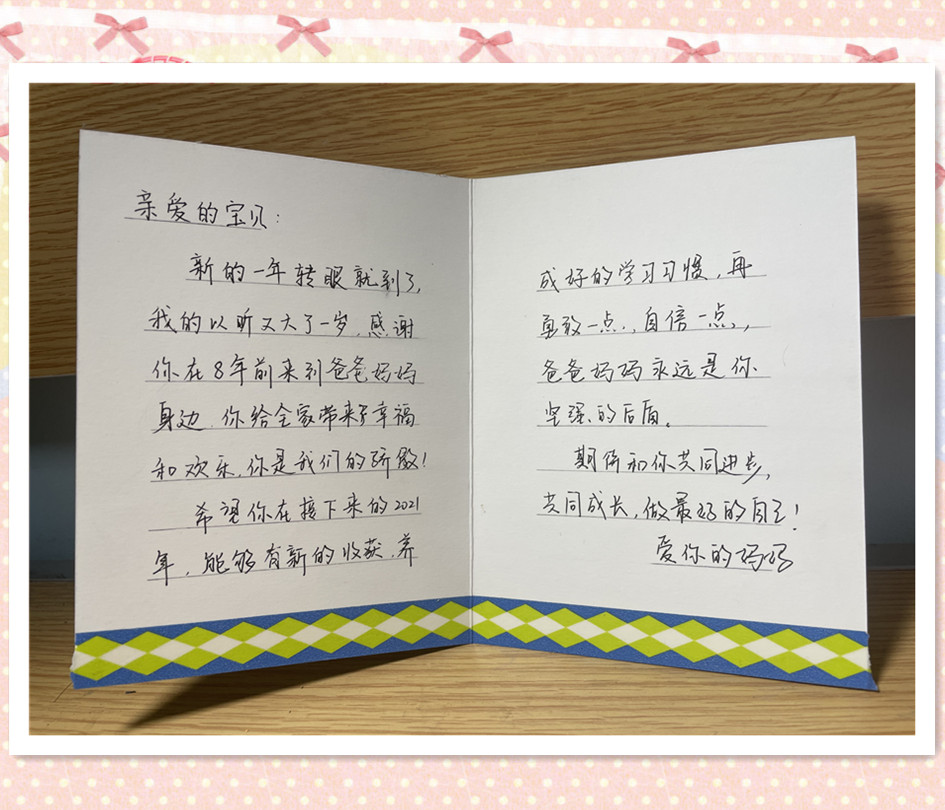 亲爱的宝贝:
新的一年转眼就到了,
我的以昕又大了一岁,感谢
你在8年前来到爸爸妈妈
身边,你给全家带来了幸福
和欢乐,你是我们的骄傲!
希望你在接下来的2021
年,能够有新的收获,养
成好的学习习惯,再
勇敢一点,自信一点,
爸爸妈妈永远是你
坚强的后盾。
期待和你共同进步,
共同成长,做最好的自己!
爱你的妈妈